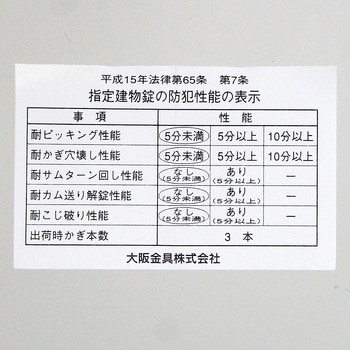 平成15年法律第65条 第7条
指定建物錠の防犯性能の表示
事項 性能
耐ピッキング性能 5分未満 5分以上 10分以上
耐かぎ穴壊し性能 5分未満 5分以上 10分以上
耐サムターン回し性能 なし(5分未満) あり(5分以上) ー
耐カム送り解錠性能 なし(5分未満) あり(5分以上) ー
耐こじ破り性能 なし(5分未満) あり(5分以上) ー
出荷時かぎ本数 3本
大阪金具株式会社